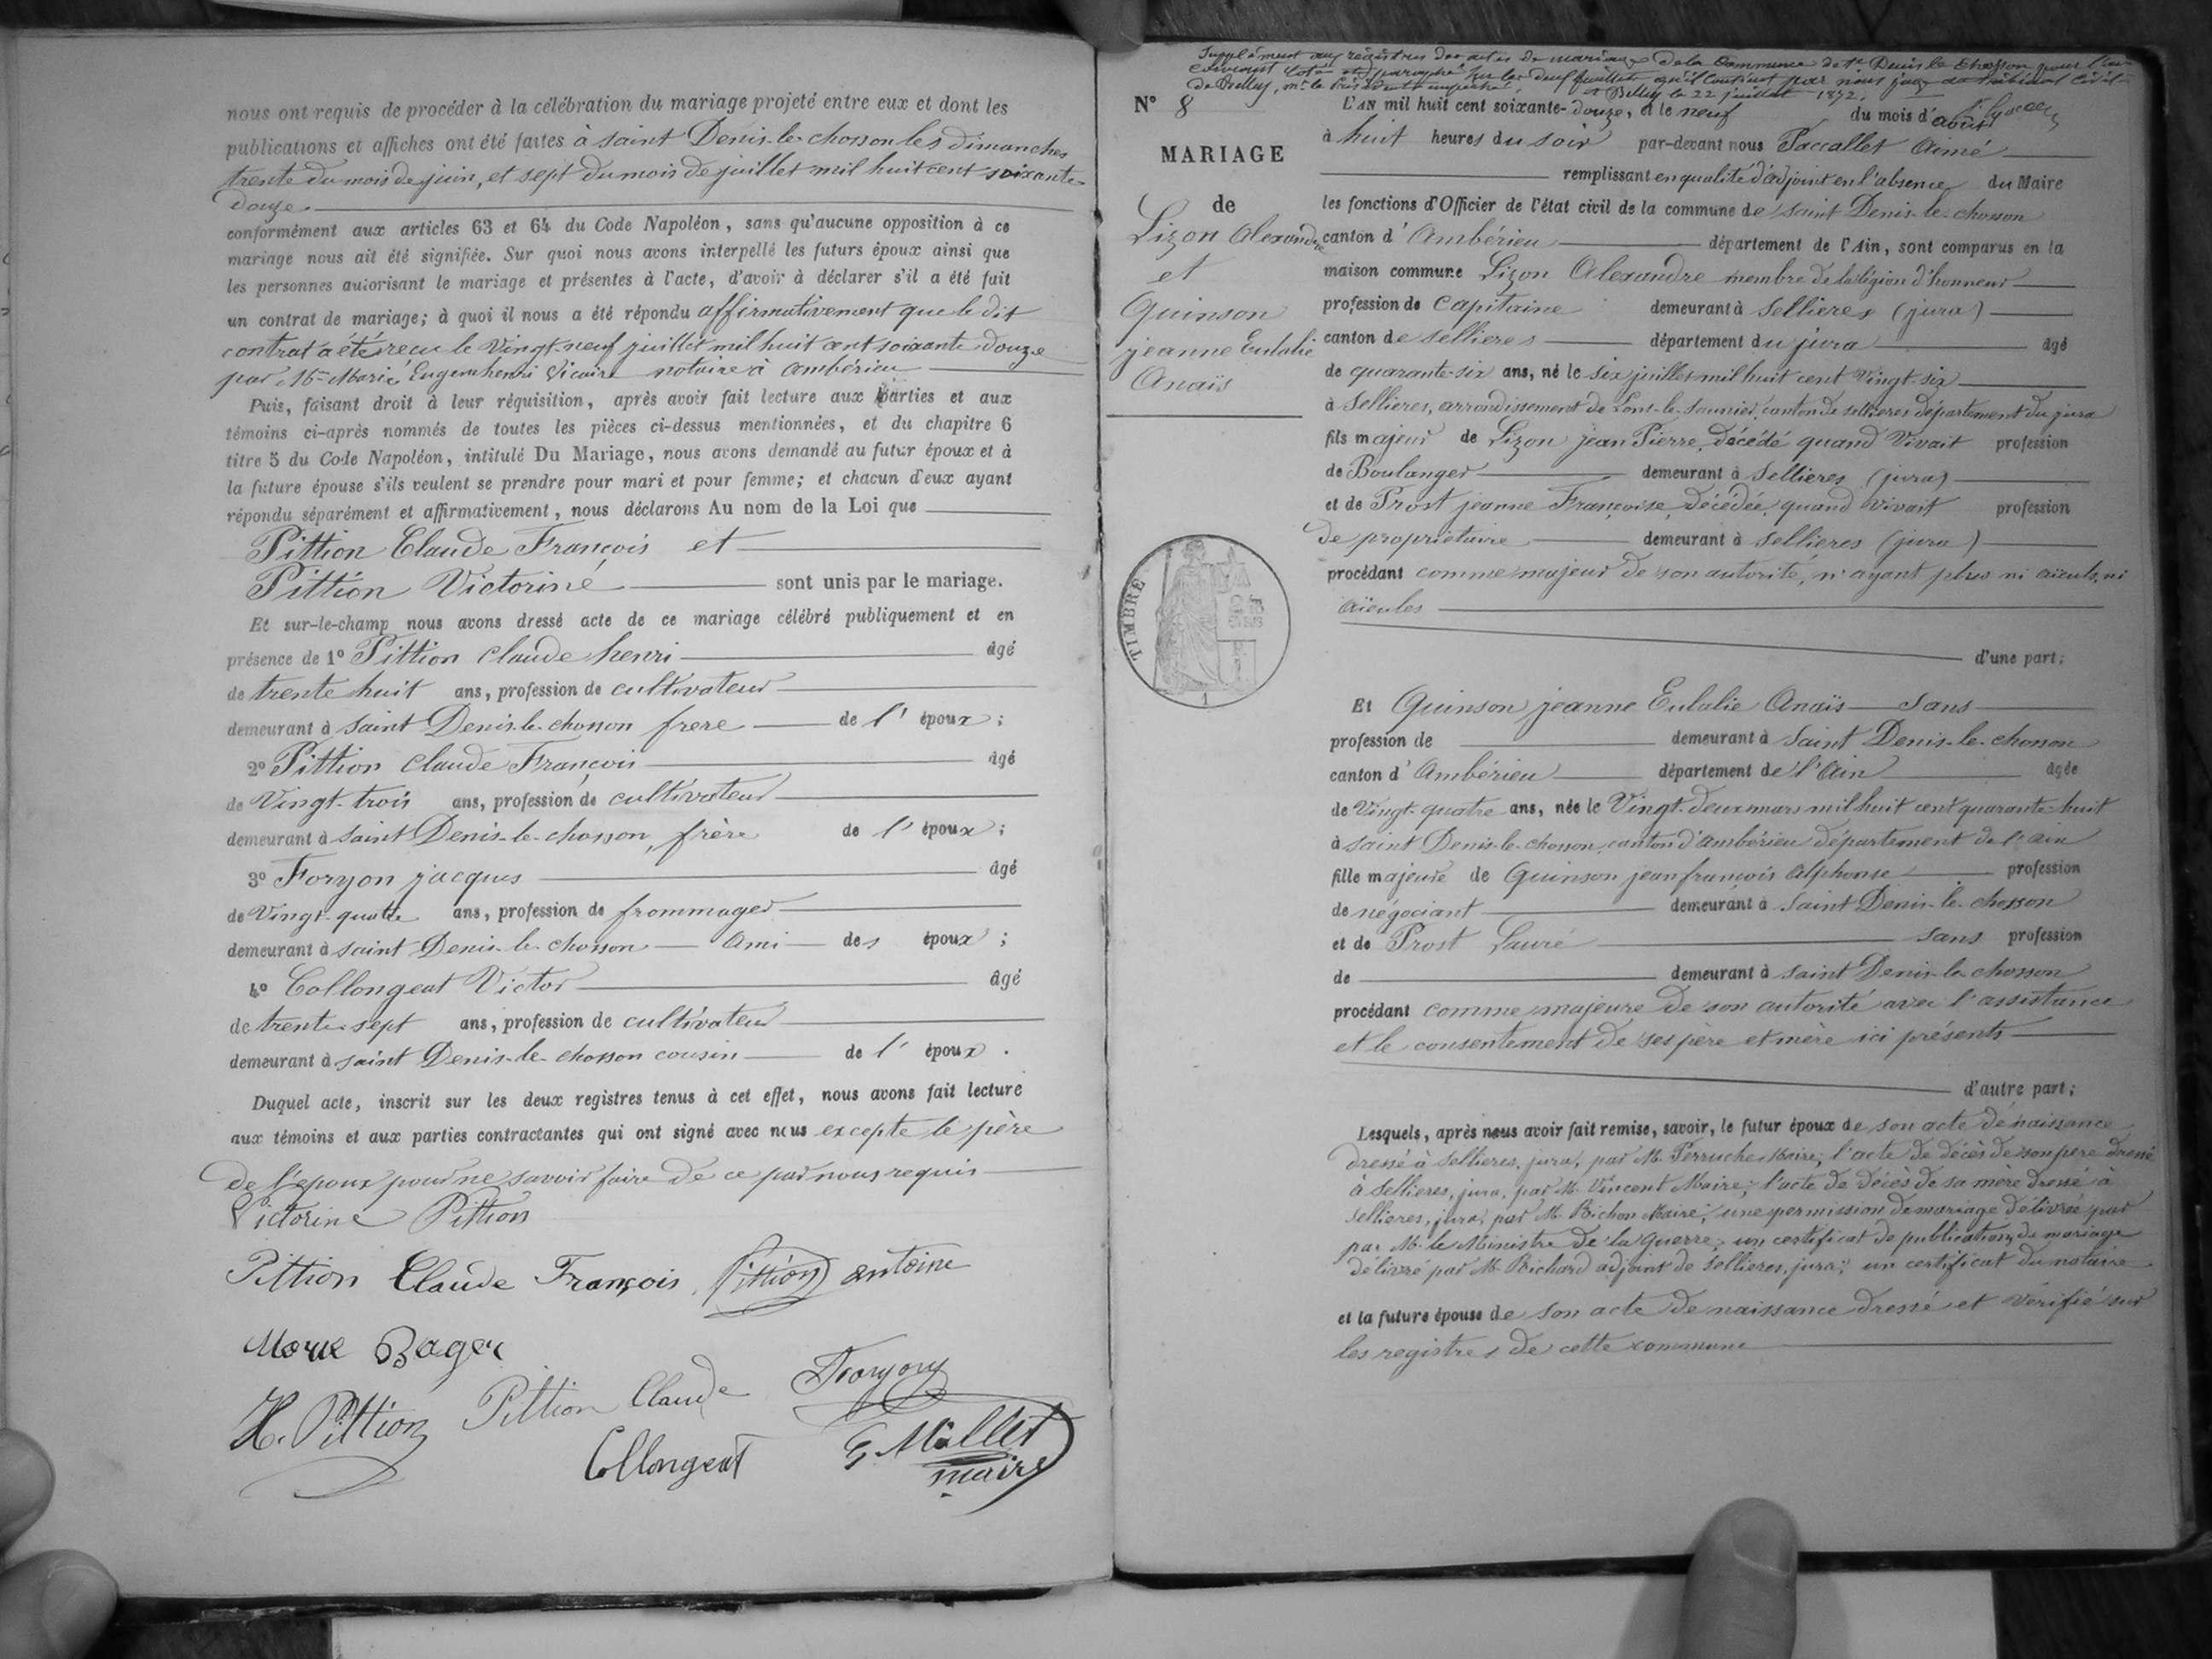 nous ont requis de procéder à la célébration du mariage projeté entre eux et dont les
publications et affiches ont été faites à saint Denis-le-chosson les dimanches
trente du mois de juin, et sept du mois de juillet mil huit cent soixante
douze.
conformément aux articles 63 et 64 du Code Napoléon, sans qu'aucune opposition à ce
mariage nous ait été signifiée. Sur quoi nous avons interpellé les futurs époux ainsi que
les personnes autorisant le mariage et présentes à l'acte, d'avoir à déclarer s'il a été fait
un contrat de mariage; à quoi il nous a été répondu affirmativement que le dit
contrat a été reçu le Vingt-neuf juillet mil huit cent soixante douze
par Me Marie Eugene henri Vicaire notaire à ambérieu
Puis, faisant droit à leur réquisition, après avoir fait lecture aux parties et aux
témoins ci-après nommés de toutes les pièces ci-dessus mentionnées, et du chapitre 6
titre 5 du Code Napoléon, intitulé Du Mariage, nous avons demandé au futur époux et à
la future épouse s'ils veulent se prendre pour mari et pour femme; et chacun d'eux ayant
répondu séparément et affirmativement, nous déclarons Au nom de la Loi que
Pittion Claude François et
Pittion Victorine sont unis par le mariage.
Et sur-le-champ nous avons dressé acte de ce mariage célébré publiquement et en
présence de 1º Pittion Claude henri âgé
de trente huit ans, profession de cultivateur
demeurant à saint Denis-le-chosson frere de l'époux;
2º Pittion Claude François âgé
de Vingt-trois ans, profession de cultivateur
demeurant à saint Denis-le-chosson, frère de l'époux;
3º Foryon jacques âgé
de Vingt-quatre ans, profession de frommager
demeurant à saint Denis-le-chosson ami des époux;
4º Collongeat Victor âgé
de trente-sept ans, profession de cultivateur
demeurant à saint Denis-le-chosson cousin de l'époux.
Duquel acte, inscrit sur les deux registres tenus à cet effet, nous avons fait lecture
aux témoins et aux parties contractantes qui ont signé avec nous excepte le père
de l'époux pour ne savoir faire de ce par nous requis
Victorine Pittion
Pittion Claude François Pittion antoine
Marie Bager
H. Pittion Pittion Claude Foryon
Collongeat G. Mallet
maire
Supplément aux registres des actes de mariage de la Commune de St Denis le Chosson pour l'an
courant Coté et paraphé sur les deux feuillets qu'il contient par nous juge au tribunal Civil
de Belley, Mr le Président empêché. à Belley le 22 juillet 1872.
Nº 8
MARIAGE
de
Lizon Alexandre
et
Quinson
jeanne Eulalie
Anaïs
TIMBRE
1
L'AN mil huit cent soixante-douze, et le neuf du mois d'août
à huit heures du soir par-devant nous Paccallet Aimé
remplissant en qualité d'adjoint en l'absence du Maire
les fonctions d'Officier de l'état civil de la commune de saint Denis-le-chosson
canton d'Ambérieu département de l'Ain, sont comparus en la
maison commune Lizon Alexandre membre de la légion d'honneur
profession de capitaine demeurant à Sellieres (jura)
canton de sellieres département du jura âgé
de quarante-six ans, né le six juillet mil huit cent Vingt-six
à Sellieres, arrondissement de Lons-le-Saunier, canton de sellieres département du jura
fils majeur de Lizon jean Pierre, décédé quand Vivait profession
de Boulanger demeurant à Sellieres (jura)
et de Prost jeanne Françoise, décédée, quand vivait profession
de propriétaire demeurant à sellieres (jura)
procédant comme majeur de son autorité, n'ayant plus ni aieuls, ni
aïeules
d'une part;
Et Quinson jeanne Eulalie Anaïs sans
profession de demeurant à Saint Denis-le-chosson
canton d'Ambérieu département de l'Ain âgée
de Vingt-quatre ans, née le Vingt-deux mars mil huit cent quarante-huit
à saint Denis-le-chosson, canton d'ambérieu département de l'ain
fille majeure de Quinson jean françois Alphonse profession
de négociant demeurant à Saint Denis-le-chosson
et de Prost Laure sans profession
de demeurant à saint Denis-le-chosson
procédant comme majeure de son autorité avec l'assistance
et le consentement de ses père et mère ici présents
d'autre part;
Lesquels, après nous avoir fait remise, savoir, le futur époux de son acte de naissance
dressé à Sellieres, jura, par M. Perruche Maire; l'acte de décès de son père dressé
à Sellieres, jura, par M. Vincent Maire; l'acte de décès de sa mère dressé à
Sellieres, jura, par M. Bichon Maire; une permission de mariage délivrée par
par M. le Ministre de la guerre; un certificat de publications de mariage
délivré par M. Richard adjoint de Sellieres, jura; un certificat du notaire
et la future épouse de son acte de naissance dressé et vérifié sur
les registres de cette commune